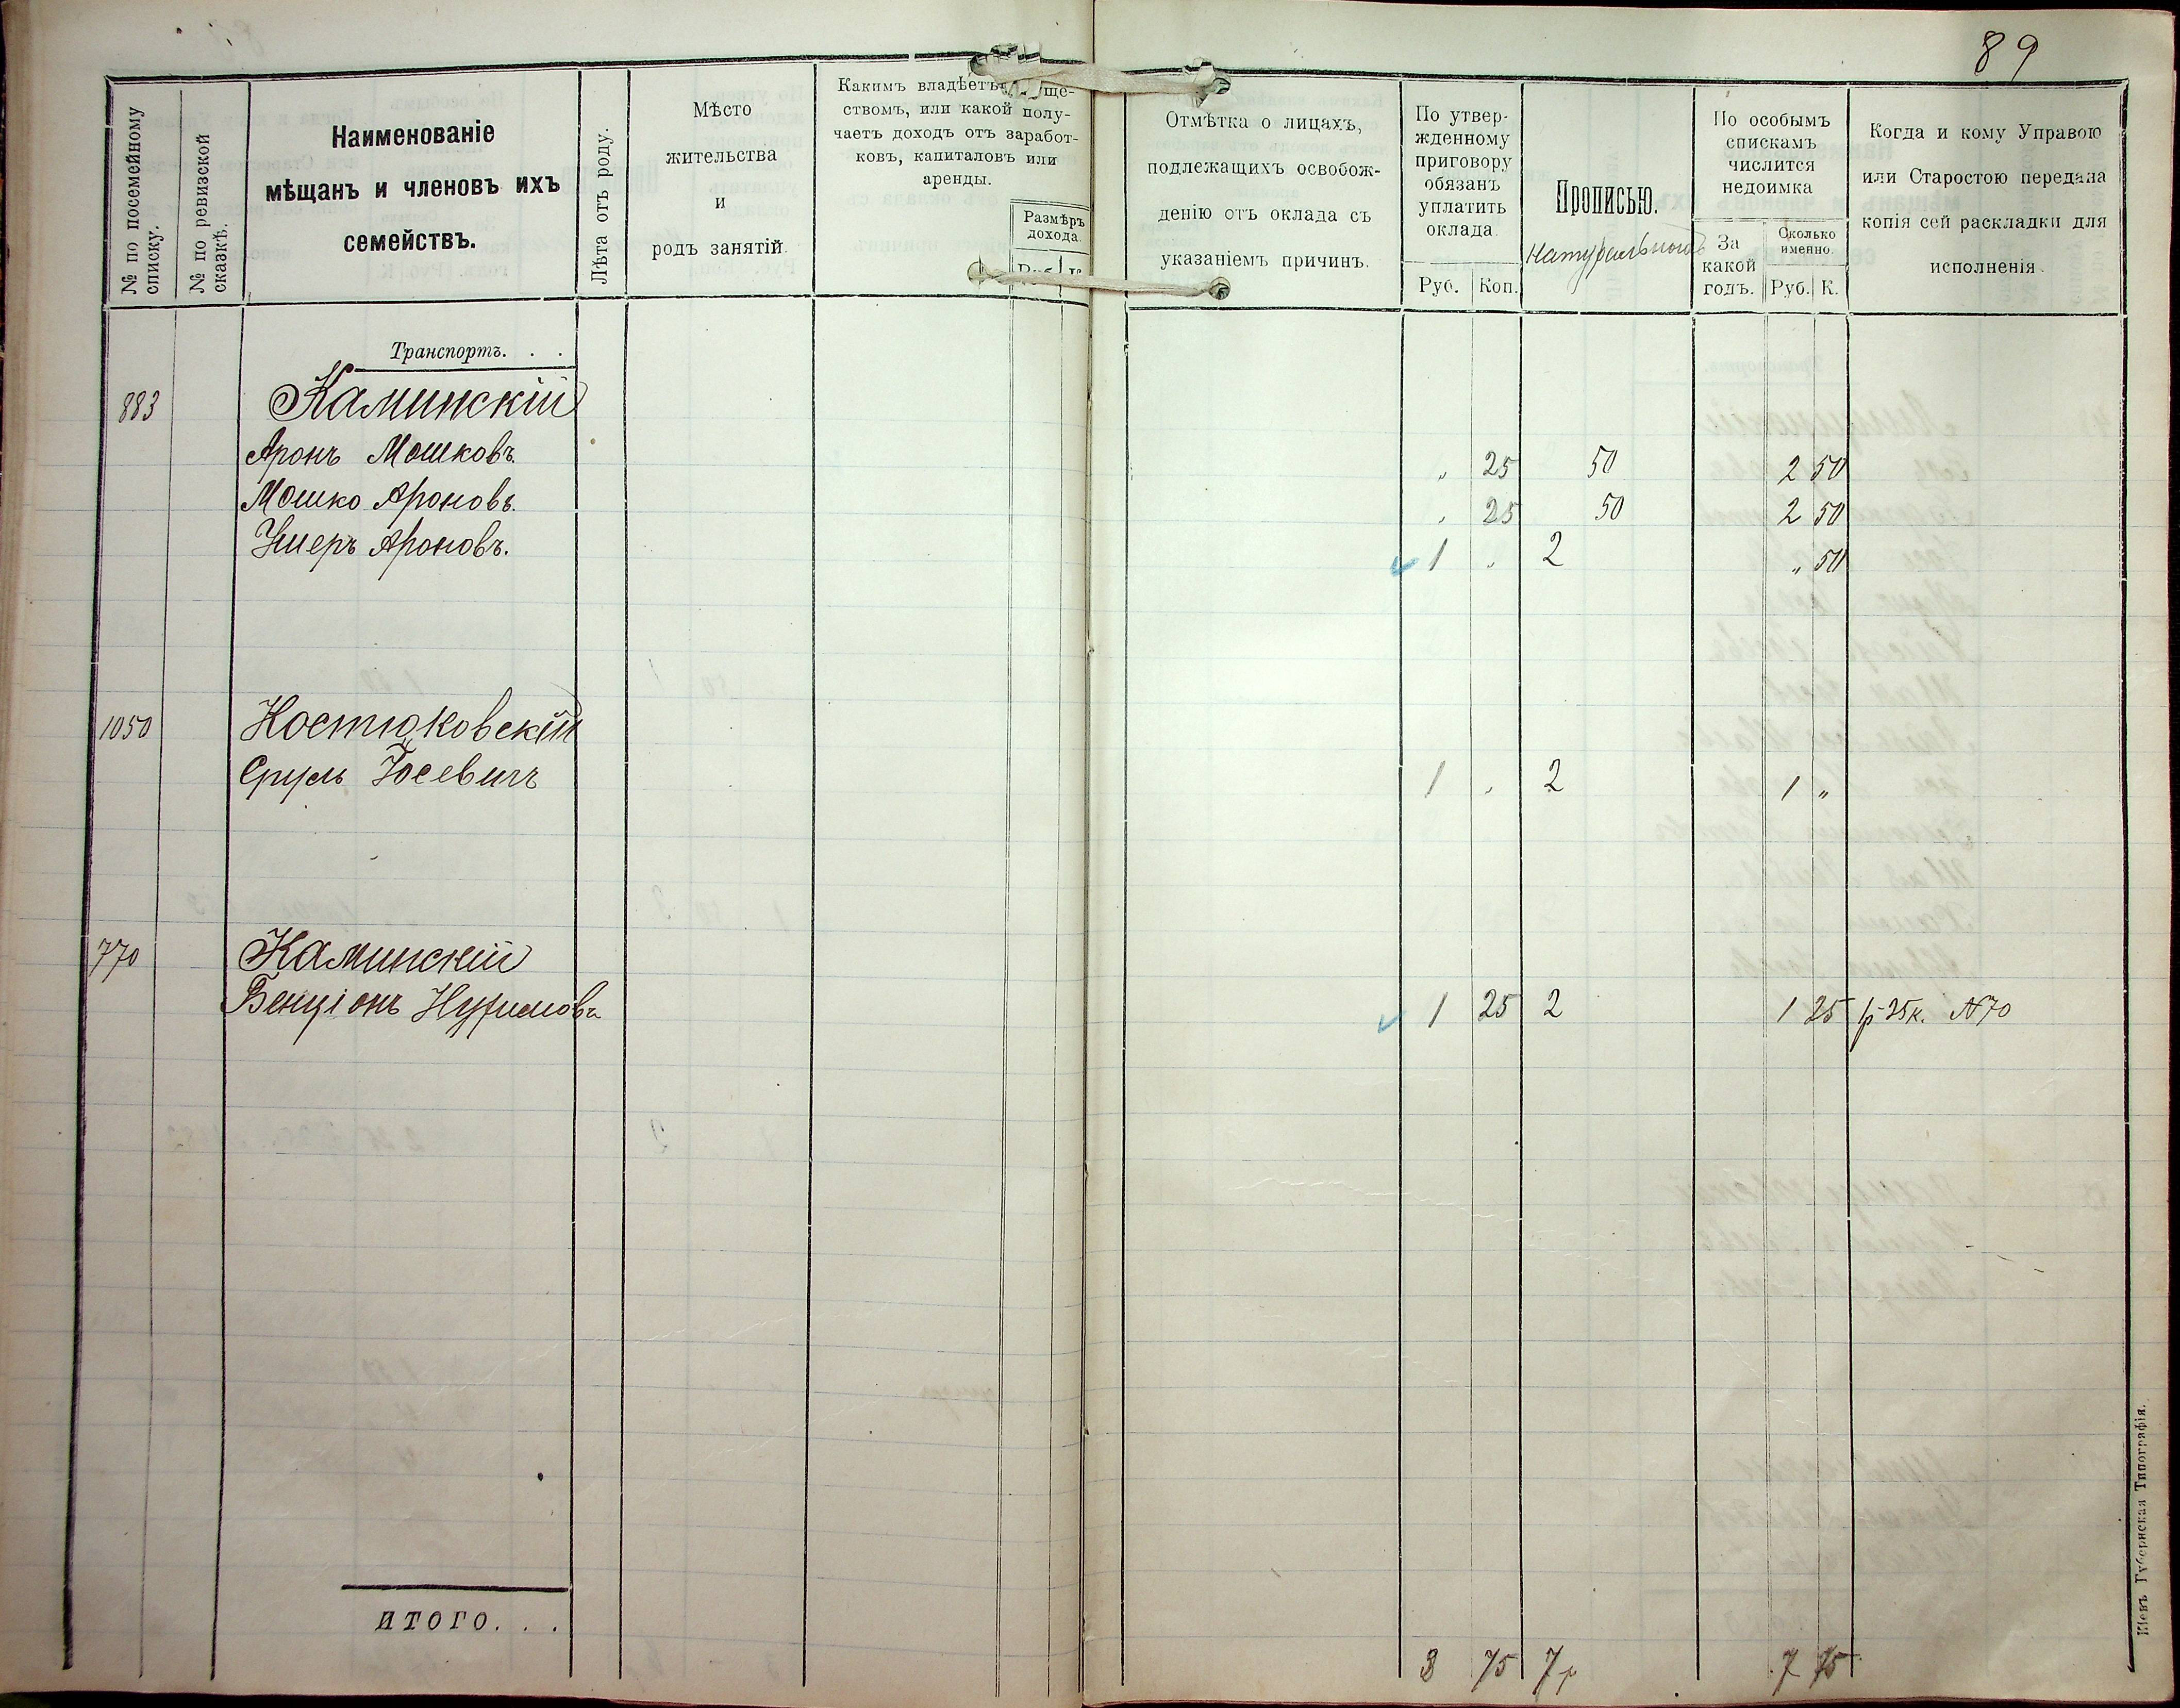 89
№ по посемейному списку.
№ по ревизской сказкѣ.
Наименованіе
мѣщанъ и членовъ ихъ
семействъ.
Лѣта отъ роду.
Мѣсто
жительства
и
родъ занятій.
Какимъ владѣетъ ще-
ствомъ, или какой полу-
чаетъ доходъ отъ заработ-
ковъ, капиталовъ или
аренды.
Размѣръ
дохода.
Руб. К
Отмѣтка о лицахъ,
подлежащихъ освобож-
денію отъ оклада съ
указаніемъ причинъ.
По утвер-
жденному
приговору
обязанъ
уплатить
оклада.
Руб. Коп.
Прописью.
натуральною
По особымъ
спискамъ
числится
недоимка
За
какой
годъ.
Сколько
именно.
Руб. К.
Когда и кому Управою
или Старостою передана
копія сей раскладки для
исполненія.
Транспортъ. . .
883 Каминскій
Аронъ Мошковъ. " 25 50 2 50
Мошко Ароновъ. " 25 50 2 50
Ушеръ Ароновъ. 1 " 2 " 50
1050 Костюковскій
Сруль Іосевичъ 1 " 2 1 "
770 Каминскій
Бенціонъ Нухимовъ 1 25 2 1 25 1р 25к. №70
ИТОГО. . .
3 75 7р 7 75
Кіевъ Губернская Типографія.